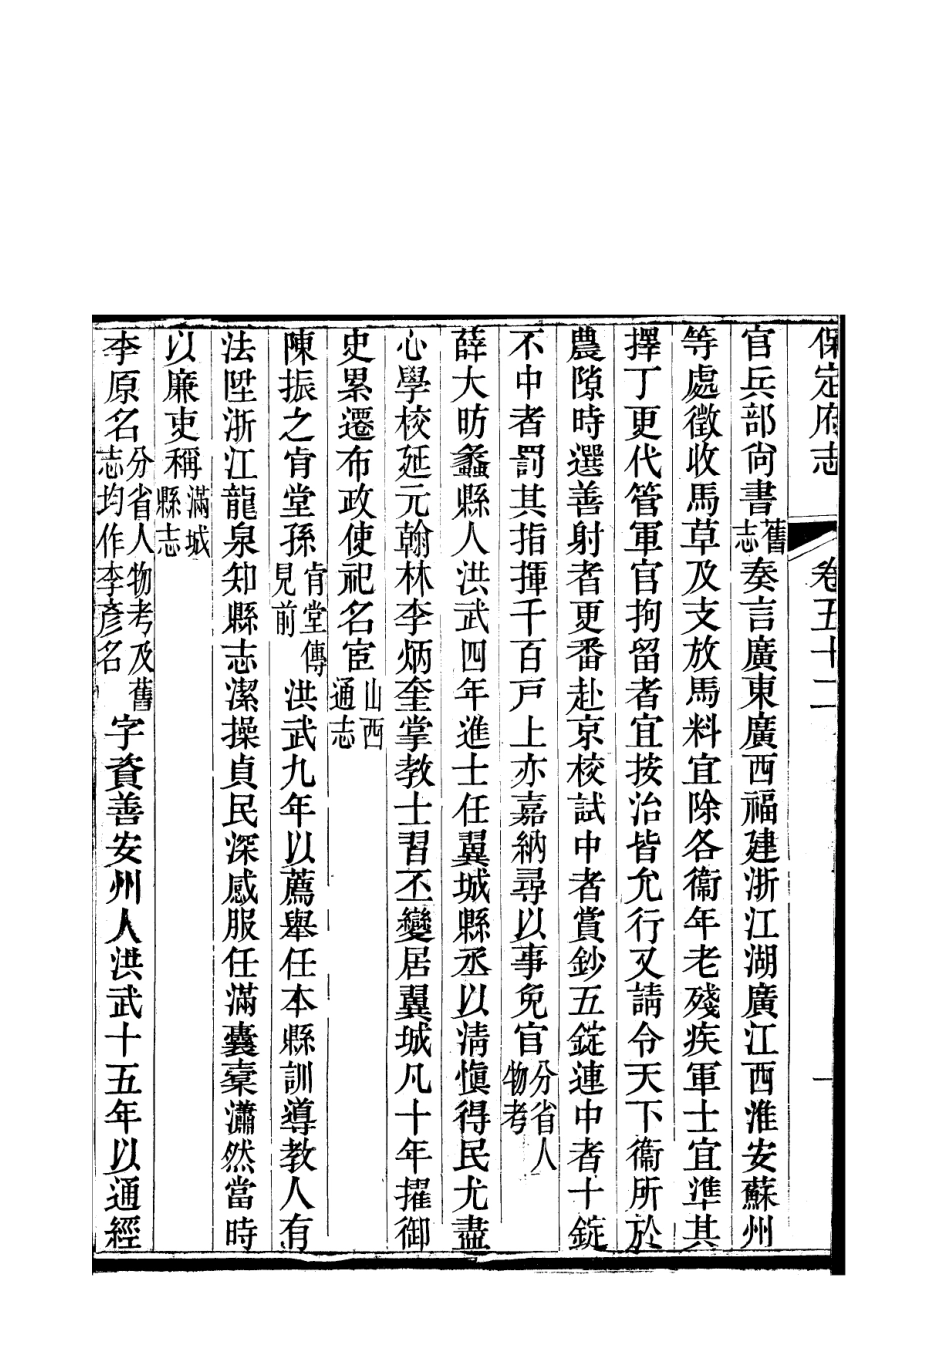 保定府志 卷五十二 一
官兵部尚書舊志奏言廣東廣西福建浙江湖廣江西淮安蘇州
等處徵收馬草及支放馬料宜除各衞年老殘疾軍士宜準其
擇丁更代管軍官拘留者宜按治皆允行又請令天下衞所於
農隙時選善射者更番赴京校試中者賞鈔五錠連中者十錠
不中者罰其指揮千百戸上亦嘉納尋以事免官分省人物考
薛大昉蠡縣人洪武四年進士任翼城縣丞以清愼得民尤盡
心學校延元翰林李炳奎掌教士習丕變居翼城凡十年擢御
史累遷布政使祀名宦山西通志
陳振之肯堂孫肯堂傳見前洪武九年以薦舉任本縣訓導教人有
法陞浙江龍泉知縣志潔操貞民深感服任滿囊橐瀟然當時
以廉吏稱滿城縣志
李原名分省人物考及舊志均作李彥名字資善安州人洪武十五年以通經